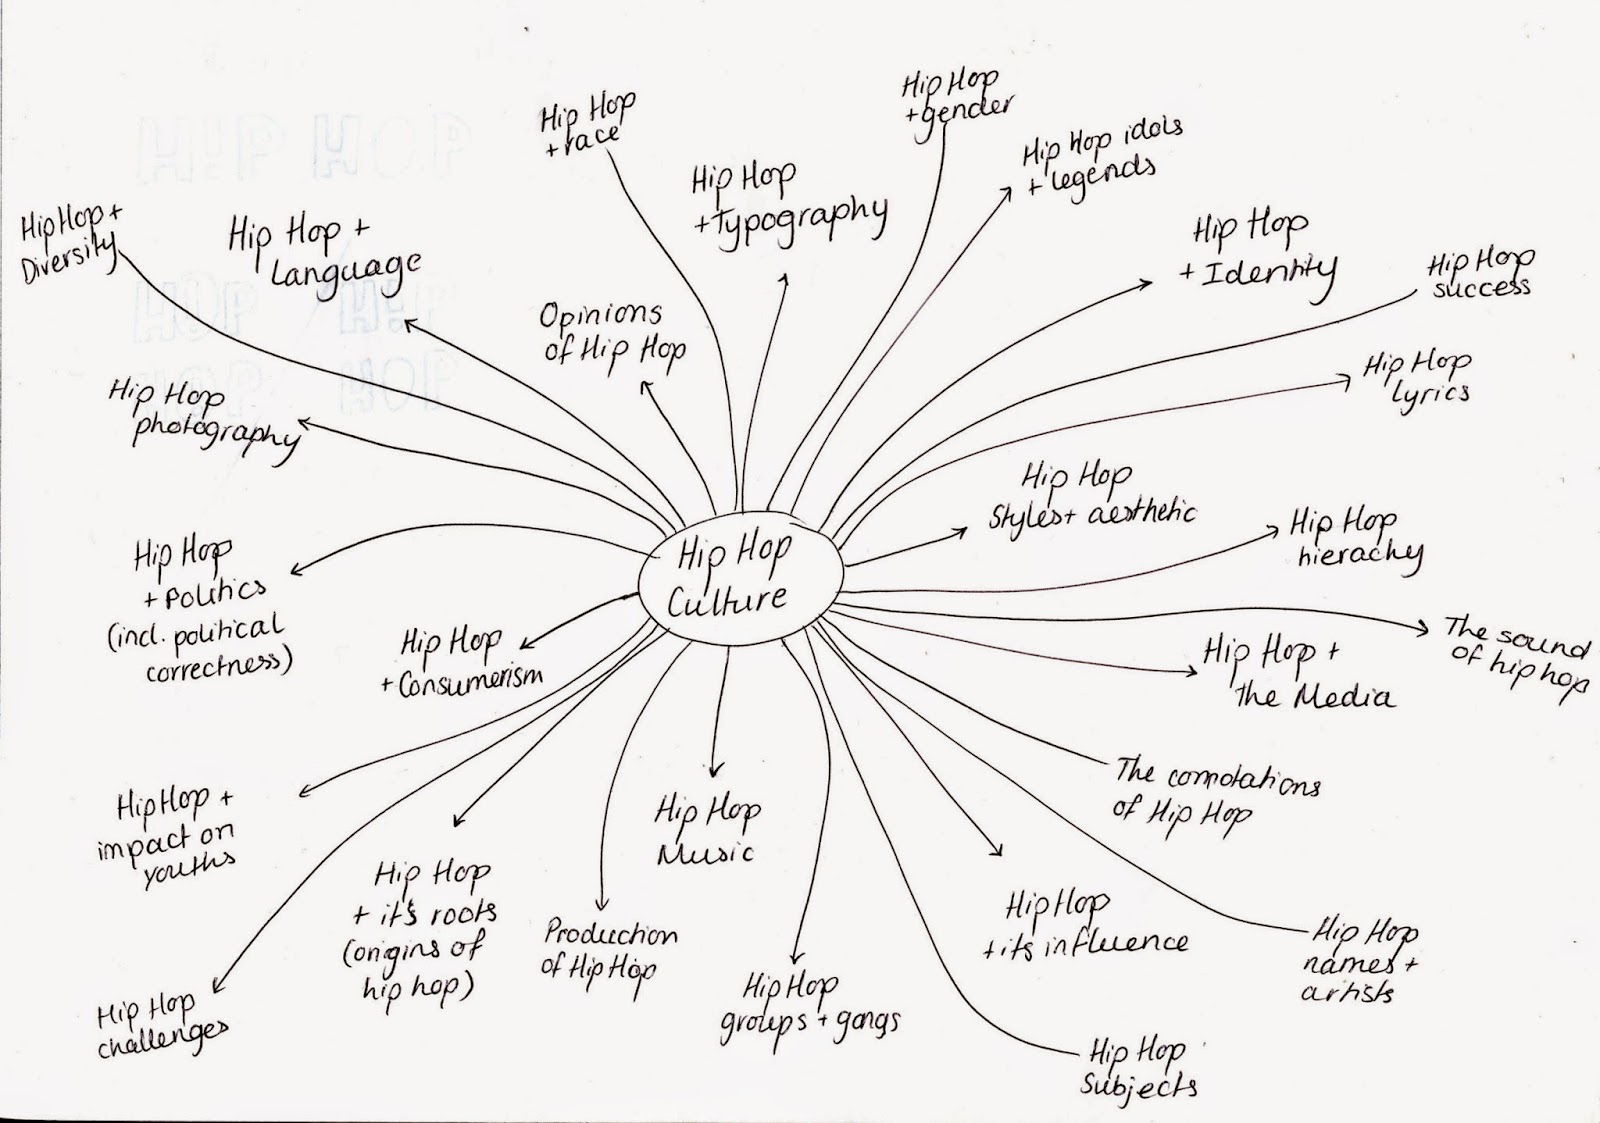 Hip Hop
Culture
Hip Hop
+ race
Hip Hop
+ Typography
Hip Hop
+ gender
Hip Hop idols
+ legends
Hip Hop
+ Identity
Hip Hop
success
Hip Hop
lyrics
Hip Hop
Styles + aesthetic
Hip Hop
hierachy
The sound
of hip hop
Hip Hop +
the Media
The connotations
of Hip Hop
Hip Hop
names +
artists
Hip Hop
+ its influence
Hip Hop
Subjects
Hip Hop
groups + gangs
Hip Hop
Music
Production
of Hip Hop
Hip Hop
+ it's roots
(origins of
hip hop)
Hip Hop
challenges
Hip Hop +
impact on
youths
Hip Hop
+ Consumerism
Hip Hop
+ Politics
(incl. political
correctness)
Hip Hop
photography
Hip Hop +
Diversity
Hip Hop +
Language
Opinions
of Hip Hop
HIP HOP
HOP HIP
HOP HOP